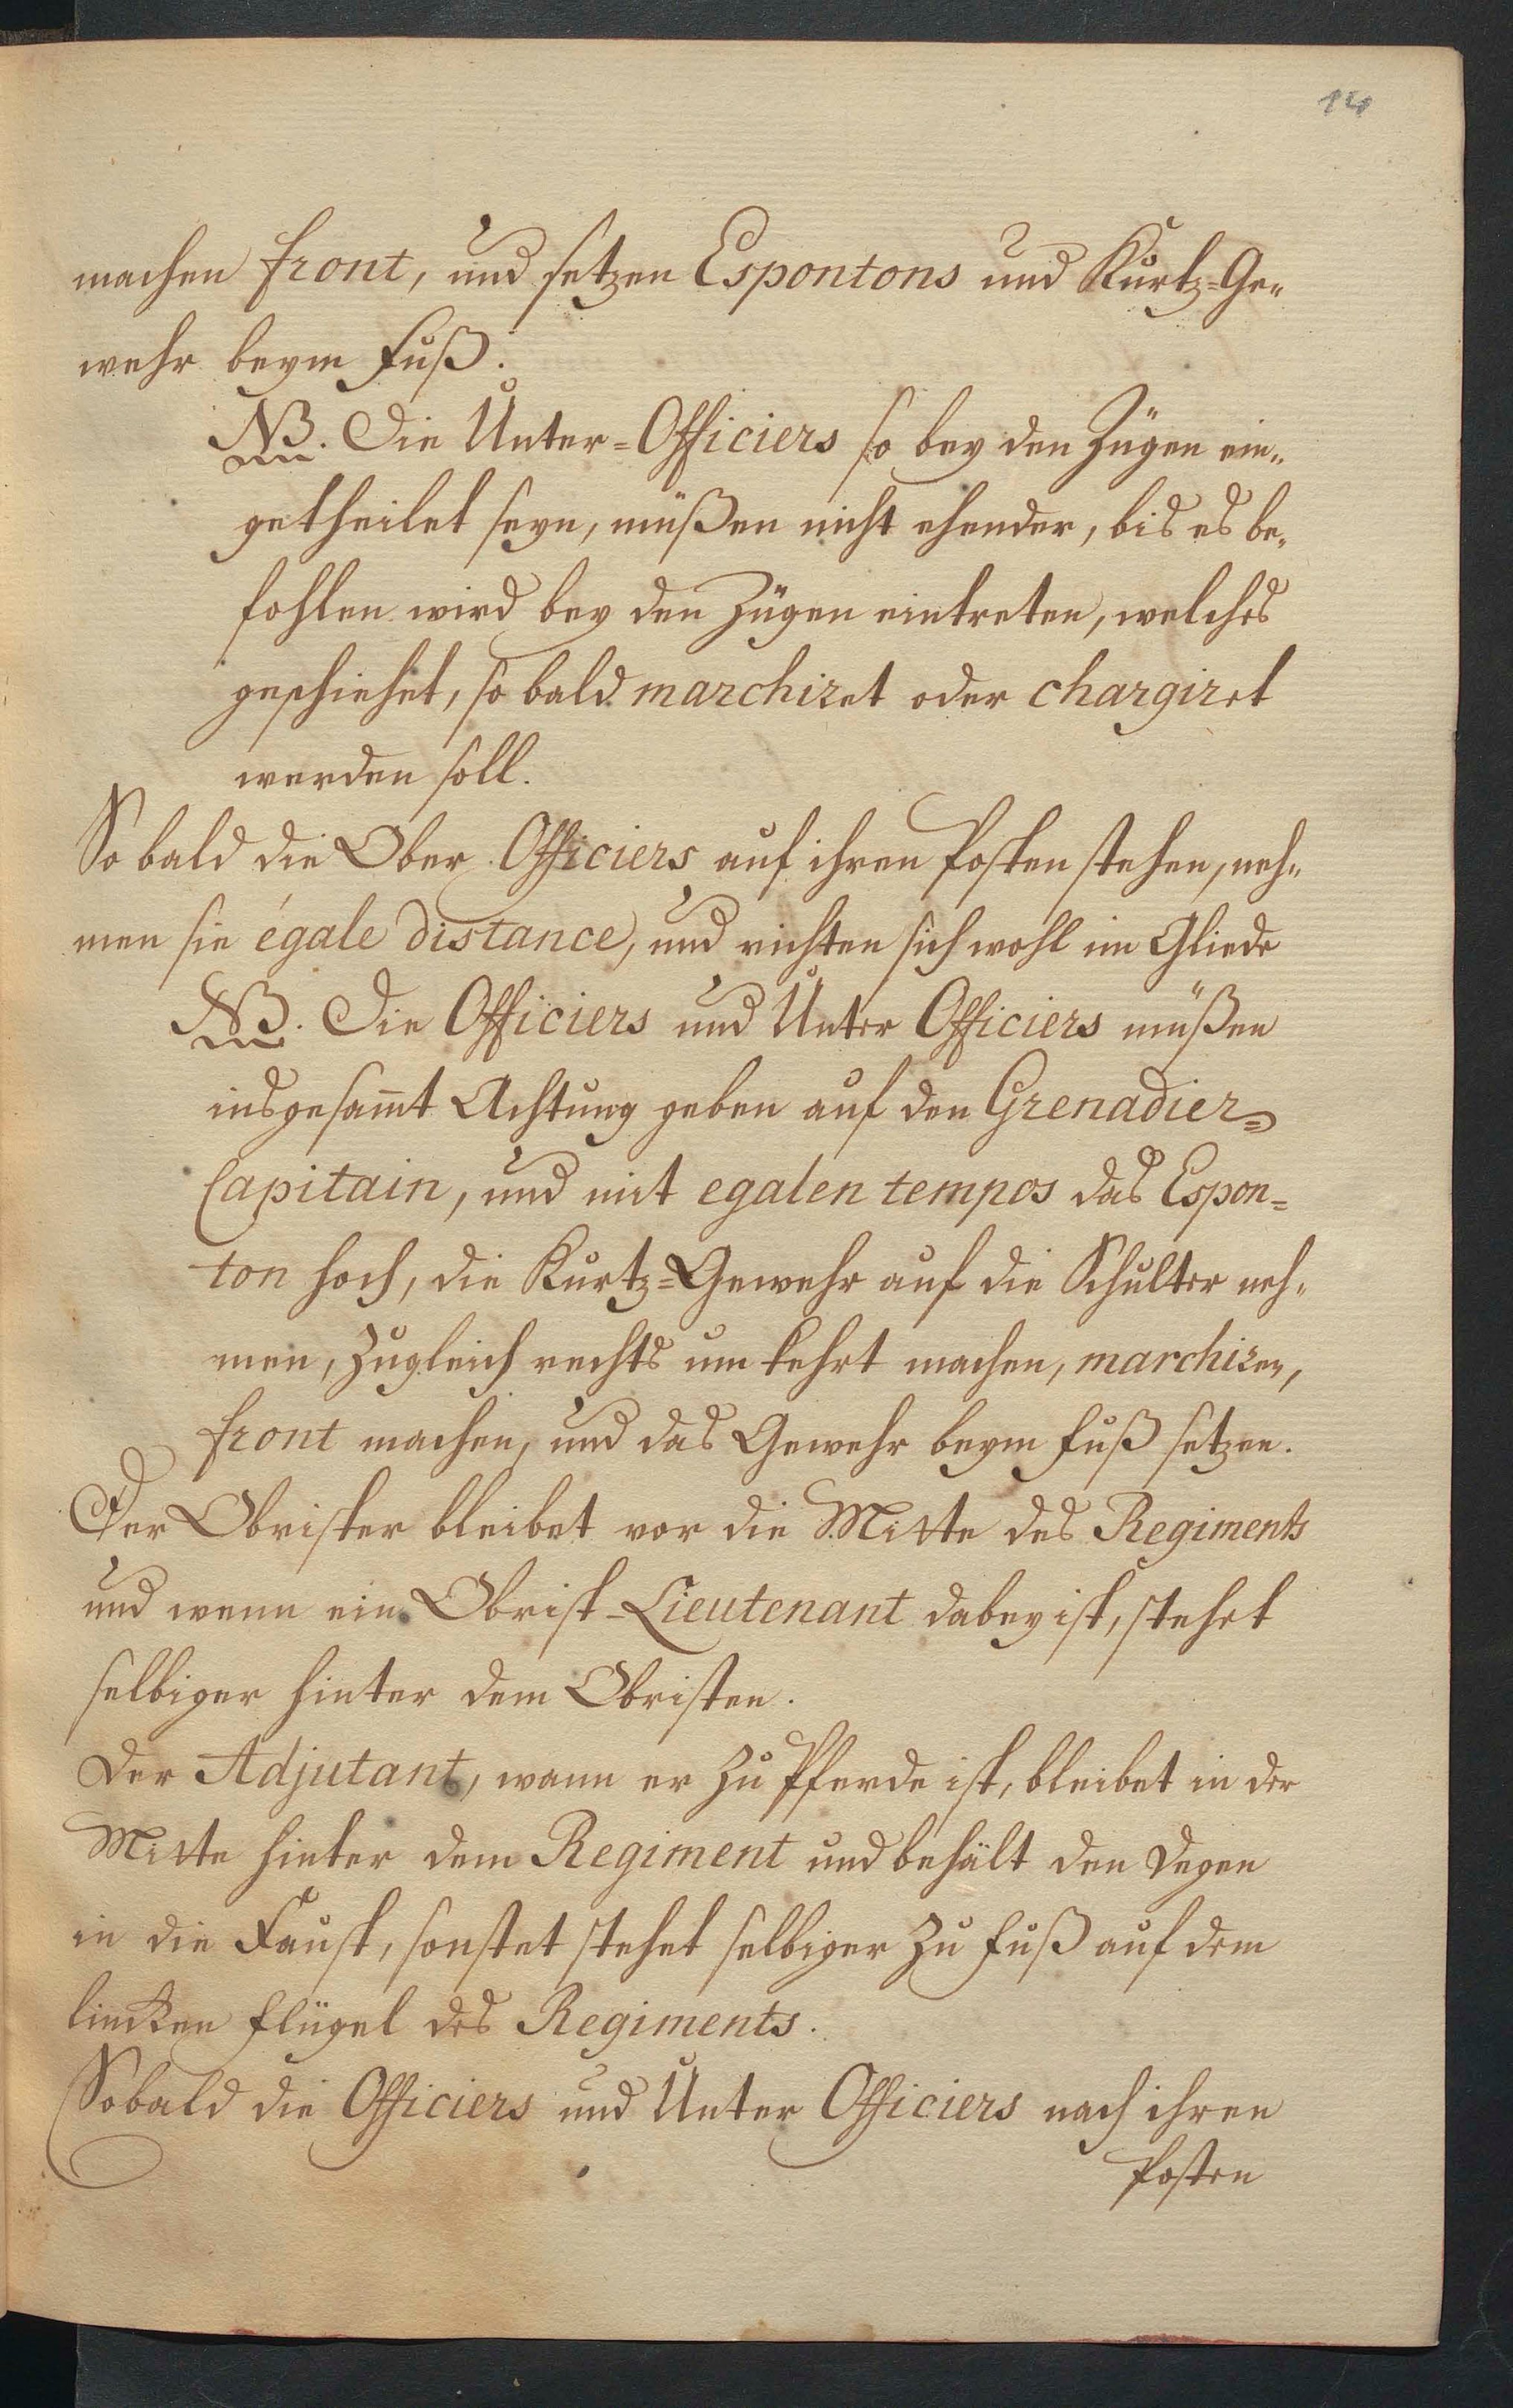 14
machen front, und setzen Espontons und Kurtz=Ge„
wehr beym Fuß.
NB. Die Unter=Officiers so bey den Zügen ein„
getheilet seyn, müßen nicht ehender, bis es be„
fohlen wird bey den Zügen eintreten, welches
geschiehet, so bald marchiret oder chargiret
werden soll.
So bald die Ober Officiers auf ihren Posten stehen, neh„
men sie égale distance, und richten sich wohl im Gliede
NB. Die Officiers und Unter Officiers müßen
insgesam̄t Achtung geben auf den Grenadier=
Capitain, und mit egalen tempos das Espon=
ton hoch, die Kurtz=Gewehr auf die Schulter neh„
men, Zugleich rechts um kehrt machen, marchiren,
front machen, und das Gewehr beym Fuß setzen.
Der Obrister bleibet vor die Mitte des Regiments
und wenn ein Obrist-Lieutenant dabey ist, stehet
selbiger hinter dem Obristen.
Der Adjutant, wann er zu Pferde ist, bleibet in der
Mitte hinter dem Regiment und behält den Degen
in die Faust, sonstet stehet selbiger zu Fuß auf dem
lincken Flügel des Regiments.
Sobald die Officiers und Unter Officiers nach ihren
Posten